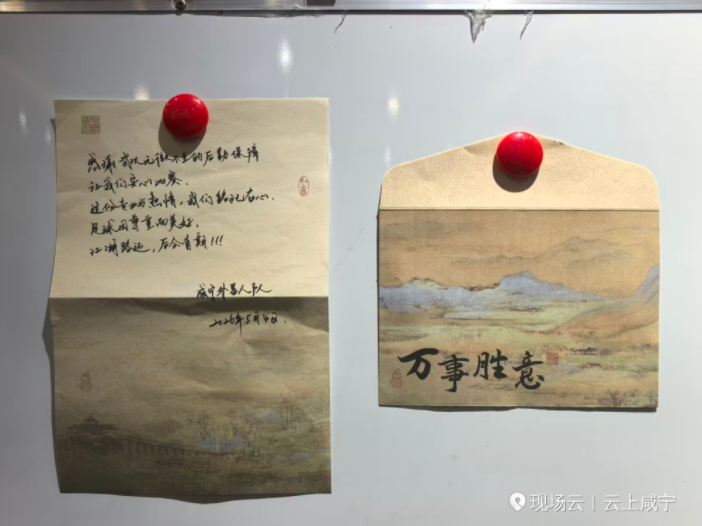 感谢武汉无微不至的后勤保障
让我们安心比赛.
这份专业与热情，我们铭记在心.
足球因尊重而美好.
江湖路远，后会有期!!!
咸宁外
人
2026年5月4日.
万事胜意
现场云|云上咸宁